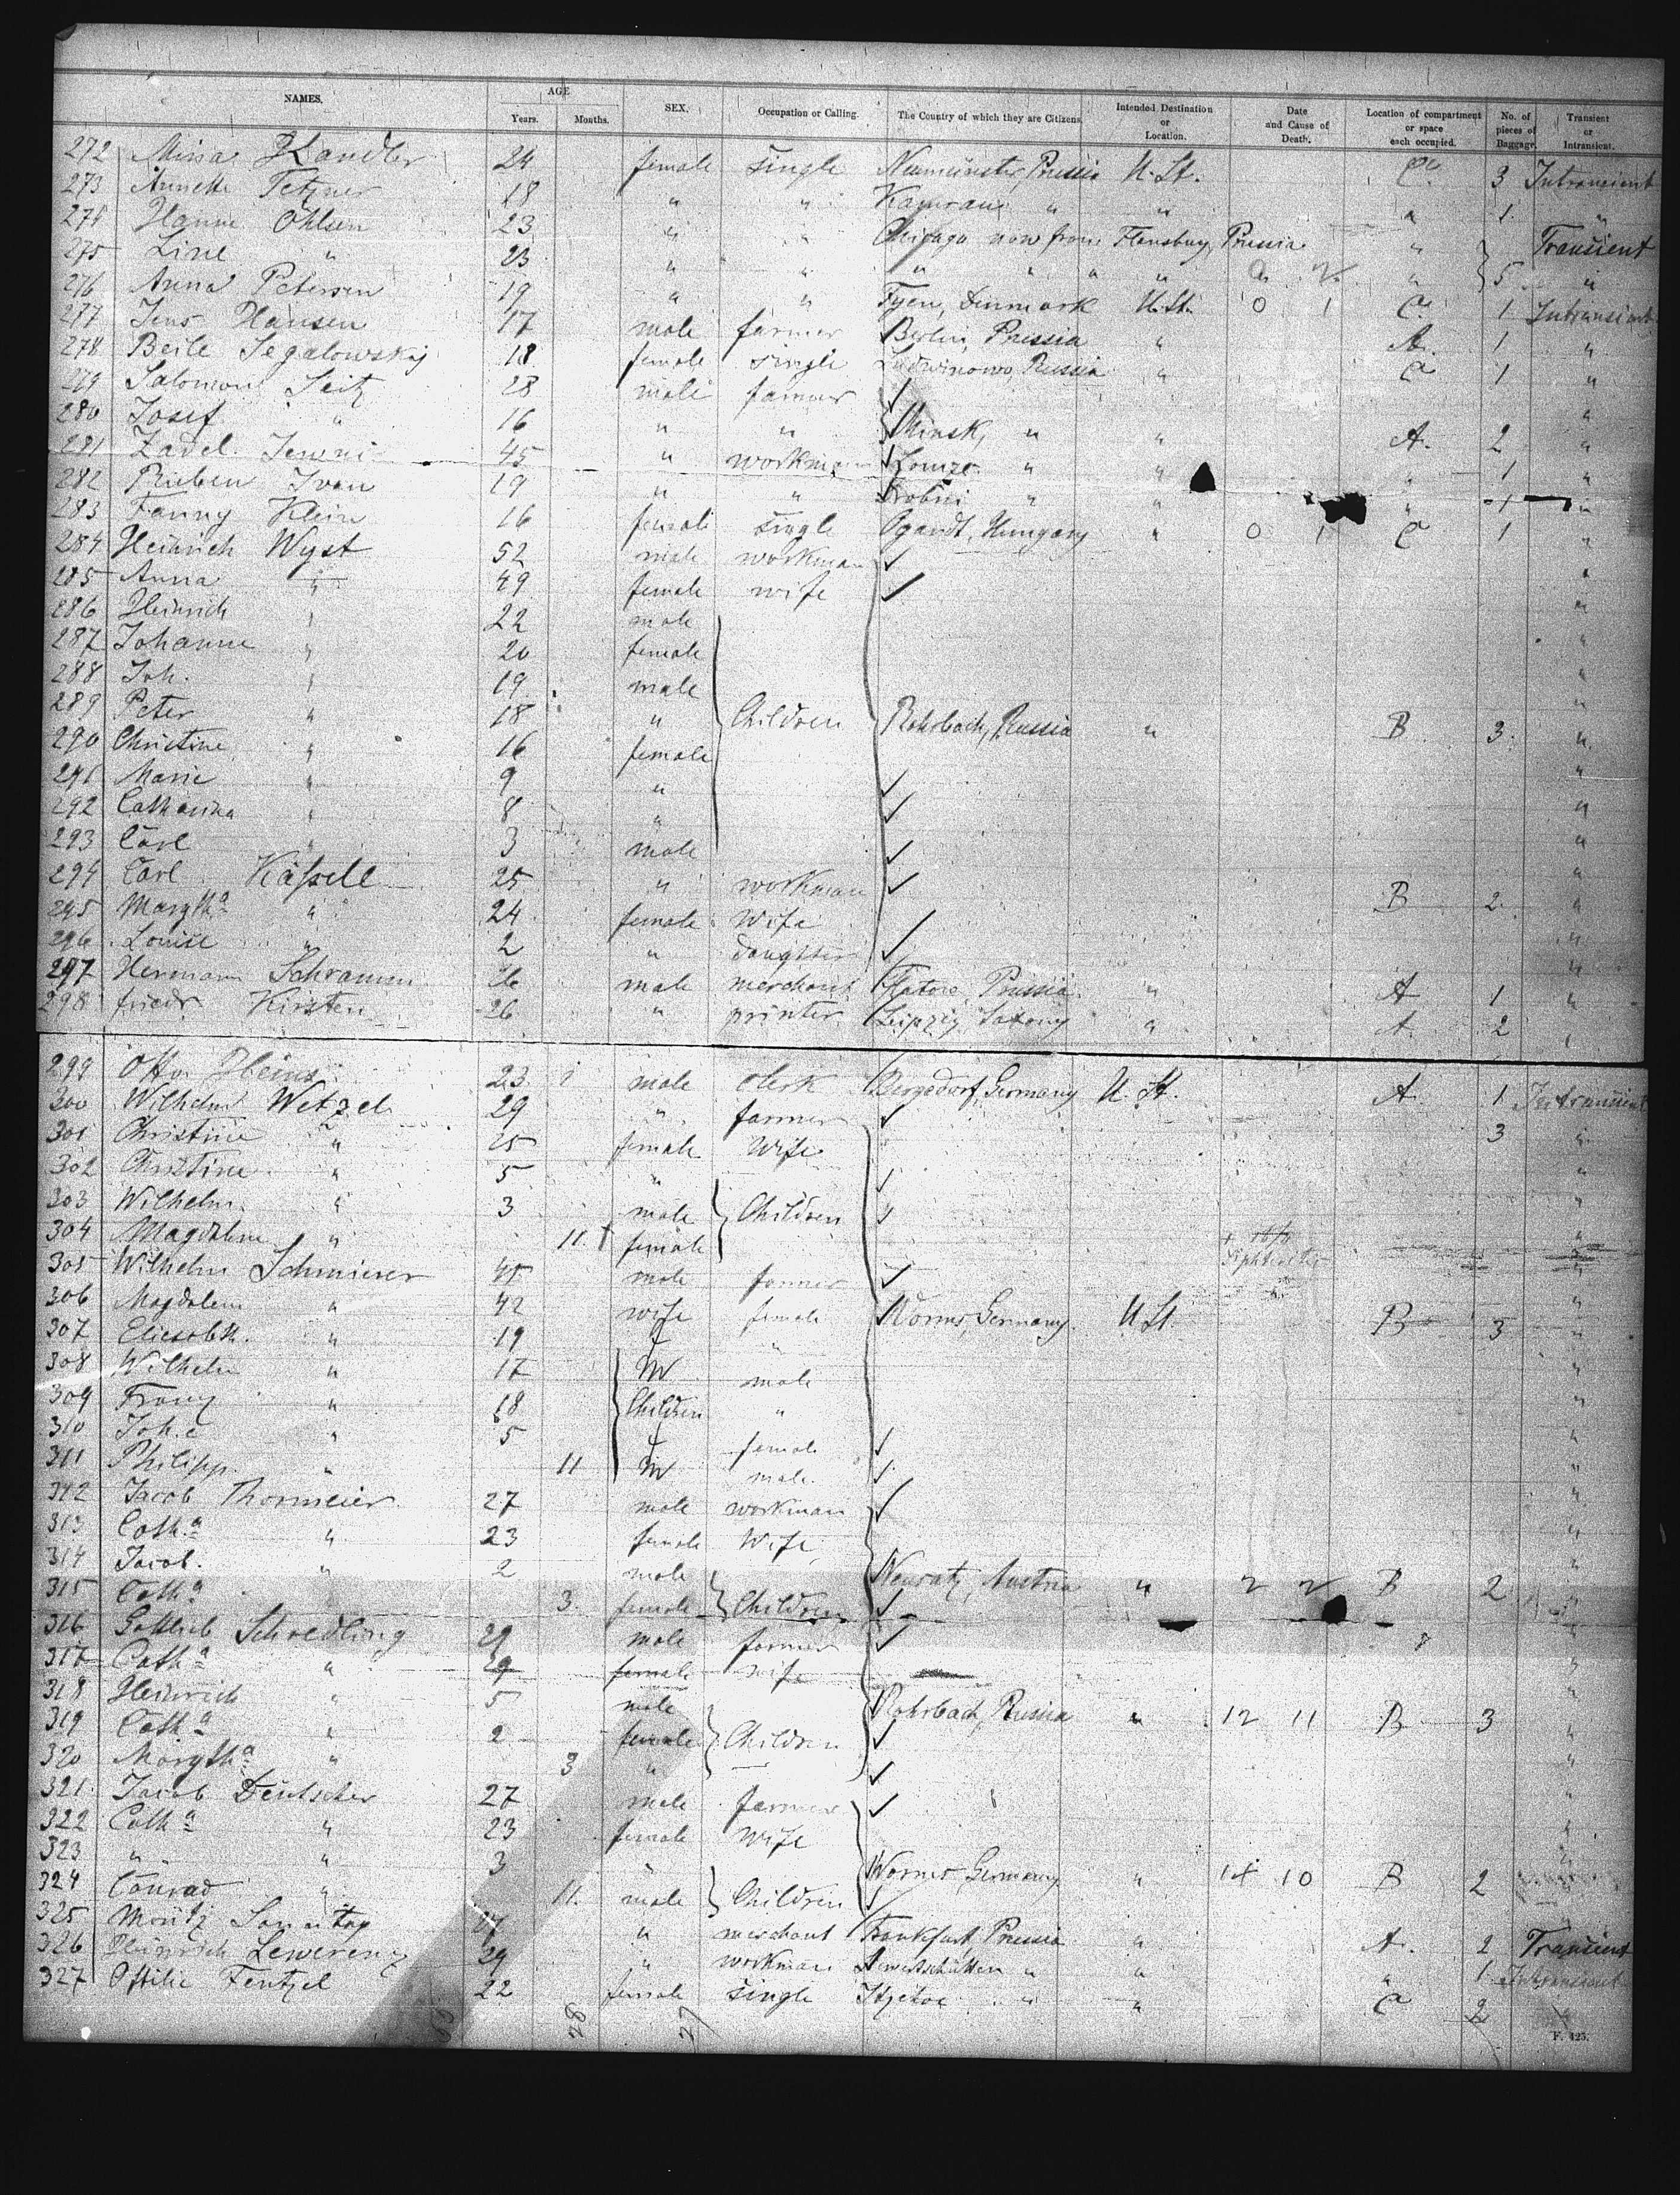 NAMES. AGE Years. Months. SEX. Occupation or Calling. The Country of which they are Citizens. Intended Destination or Location. Date and Cause of Death. Location of compartment or space each occupied. No. of pieces of Baggage. Transient or Intransient.
272 Minna Kandler 24 female single Neumünster, Prussia U. St. C. 3 Intransient
273 Annette Tetzner 18 " " " " " 1 "
274 Hanne Ohlsen 23 " " Chicago now from Flensburg, Prussia " Transient
275 Line " 23 " " " " " " " 5 "
276 Anna Petersen 19 " " Fyen, Denmark U. St. 0 1 C. 1 Intransient
277 Jens Hansen 17 male farmer Berlin, Prussia " A. 1 "
278 Beile Segalowskaj 18 female single Ludwinowo, Russia " C 1 "
279 Salomon Seitz 28 male farmer "
280 Josef " 16 " " Minsk, " " A. 2 "
281 Zadel 45 " workman " " 1 "
282 Ruben Ivan 19 " " " " " 1 "
283 Fanny Klein 16 female single Hungary " 0 1 C 1 "
284 Heinrich Wyst 52 male workman "
285 Anna " 49 female wife "
286 Heinrich " 22 male "
287 Johanne " 20 female "
288 Joh. " 19 male "
289 Peter " 18 " Children Rohrbach, Russia " B 3 "
290 Christine " 16 female "
291 Marie " 9 " "
292 Catharina " 8 " "
293 Carl " 3 male "
294 Carl Käßell 25 " workman B 2 "
295 Margtha " 24 female Wife "
296 Louise " 2 " daughter "
297 Hermann Schramm 26 male merchant Flatow, Prussia " A 1 "
298 friedr. Kirsten 26 " printer Leipzig Saxony " A. 2 "
299 Otto Heins 23 male clerk Bergedorf, Germany U. St. A. 1 Intransient
300 Wilhelm Wetzel 29 " farmer 3 "
301 Christine " 25 female Wife "
302 Christine " 5 " "
303 Wilhelm " 3 male Children "
304 Magdalene " 11 female "
305 Wilhelm Schmierer 45 male farmer "
306 Magdalena " 42 wife female Worms, Germany U. St. B 3 "
307 Eliesabth " 19 "
308 Wilhelm " 17 male "
309 Franz " 18 Children " "
310 Joh.a " 5 female "
311 Philipp " 11 male "
312 Jacob Thormeier 27 male workman "
313 Cath.a " 23 female Wife "
314 Jacob. " 2 male Neusatz, Austria " B 2 "
315 Catha 3 female Children "
316 Gottlieb Schoedling 29 male farmer "
317 Catha " 29 female wife "
318 Heinrich " 5 male Rohrbach, Russia " 12 11 B 3 "
319 Catha " 2 female Children "
320 Margtha " 3 " "
321 Jacob Deutscher 27 male farmer "
322 Catha " 23 female Wife "
323 " " 3 " Worms, Germany " 14 10 B 2
324 Conrad " 11 male Children
325 Moritz Sonntag 27 " merchant Frankfurt, Prussia " A. 2 Transient
326 Heinrich Lewerenz 29 " workman " " " 1 Intransient
327 Ottilie Fentzel 22 female single Itzehoe " " C 2 "
28 27
F. 425.